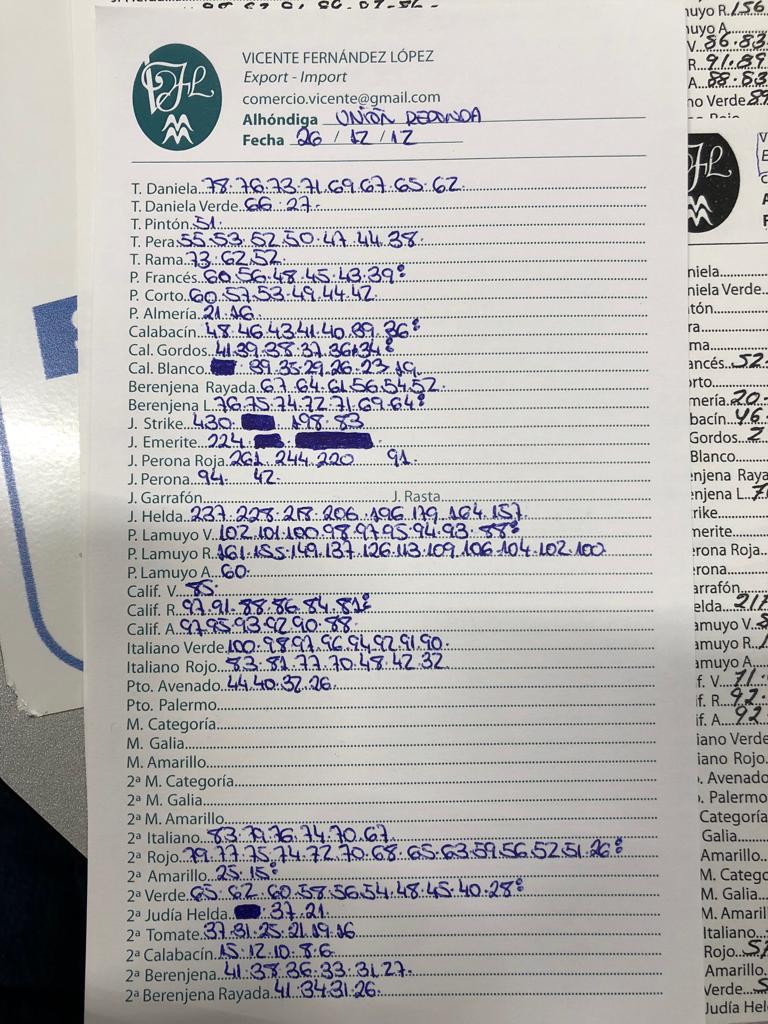 VICENTE FERNÁNDEZ LÓPEZ
Export - Import
comercio.vicente@gmail.com
Alhóndiga UNIÓN REDONDA
Fecha 26 / 12 / 12
T. Daniela..78.76.73.71.69.67.65.62
T. Daniela Verde.66.27.
T. Pintón.51.
T. Pera.55.53.52.50.47.44.38.
T. Rama.73.62.52.
P. Francés.60.56.48.45.43.39
P. Corto.60.57.53.49.44.42.
P. Almería.21.16.
Calabacín.48.46.43.41.40.39.36
Cal. Gordos.41.39.38.37.36.34
Cal. Blanco. 39.35.29.26.23.19.
Berenjena Rayada.67.64.61.56.54.52.
Berenjena L.76.75.74.72.71.69.64
J. Strike.430. 198.83
J. Emerite.224
J. Perona Roja.261.244.220 91.
J. Perona.94. 42.
J. Garrafón J. Rasta
J. Helda.237.228.218.206.196.179.164.157
P. Lamuyo V.102.101.100.98.97.95.94.93.88
P. Lamuyo R.161.155.149.137.126.113.109.106.104.102.100
P. Lamuyo A.60.
Calif. V.85.
Calif. R.97.91.88.86.84.81
Calif. A.97.95.93.92.90.88.
Italiano Verde.100.98.97.96.94.92.91.90.
Italiano Rojo.83.81.77.70.48.42.32
Pto. Avenado.44.40.32.26.
Pto. Palermo
M. Categoría
M. Galia
M. Amarillo
2ª M. Categoría
2ª M. Galia
2ª M. Amarillo
2ª Italiano.83.79.76.74.70.67.
2ª Rojo.79.77.75.74.72.70.68.65.63.59.56.52.51.26
2ª Amarillo.25.15
2ª Verde.65.62.60.58.56.54.48.45.40.28
2ª Judía Helda. 37.21.
2ª Tomate.37.31.25.21.19.16
2ª Calabacín.15.12.10.8.6.
2ª Berenjena.41.38.36.33.31.27.
2ª Berenjena Rayada.41.34.31.26.